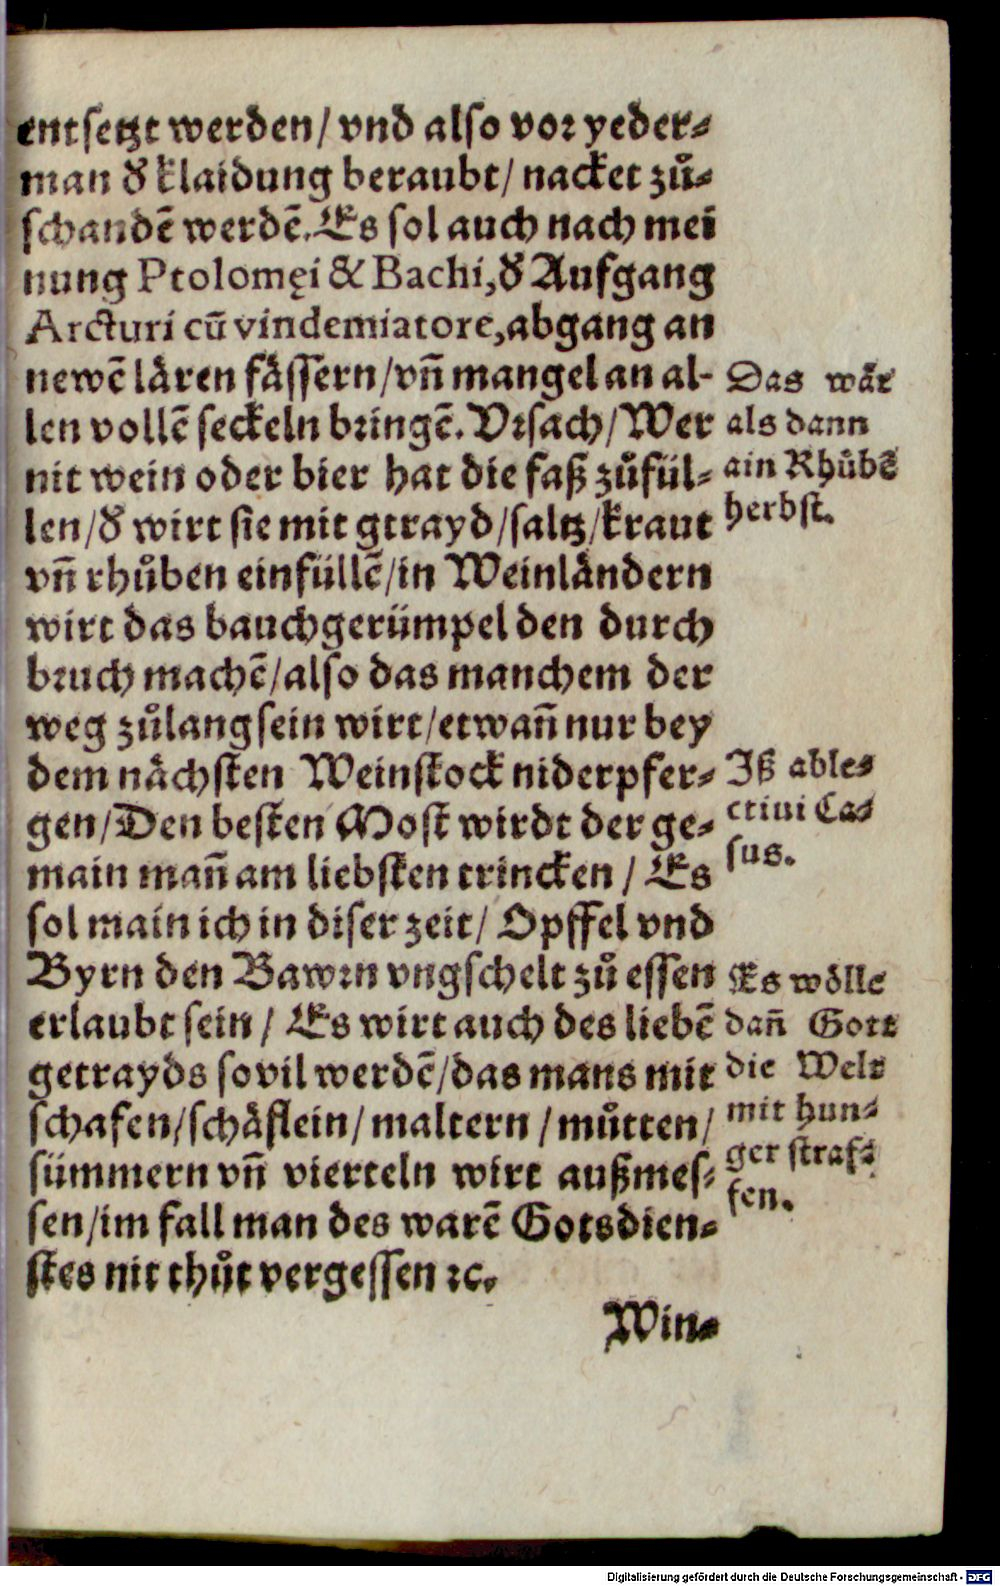 entsetzt werden/ vnd also vor yeder⸗
man d̕ klaidung beraubt/ nacket zů⸗
schandē werdē. Es sol auch nach mei
nung Ptolomęi & Bachi, d̕ Aufgang
Arcturi cū vindemiatore, abgang an
newē lären fässern/ vñ mangel an al-
len vollē seckeln bringē. Vrsach/ Wer
nit wein oder bier hat die faß zůfül⸗
len/ d̕ wirt sie mit gtrayd/ saltz/ kraut
vñ rhůben einfüllē/ in Weinländern
wirt das bauchgerümpel den durch
bruch machē/ also das manchem der
weg zůlang sein wirt/ etwañ nur bey
dem nächsten Weinstock niderpfer⸗
gen/ Den besten Most wirdt der ge⸗
main mañ am liebsten trincken / Es
sol main ich in diser zeit/ Opffel vnd
Byrn den Bawrn vngschelt zů essen
erlaubt sein / Es wirt auch des liebē
getrayds souil werdē/ das mans mit
schafen/ schäflein/ maltern / můtten/
sümmern vñ vierteln wirt außmes⸗
sen/ im fall man des warē Gotsdien⸗
stes nit thůt vergessen ꝛc.
Win⸗
Das wär
als dann
ain Rhůbē
herbst.
Iß able⸗
ctiui Ca⸗
sus.
Es wölle
dañ Gott
die Welt
mit hun⸗
ger straf⸗
fen.
Digitalisierung gefördert durch die Deutsche Forschungsgemeinschaft - DFG